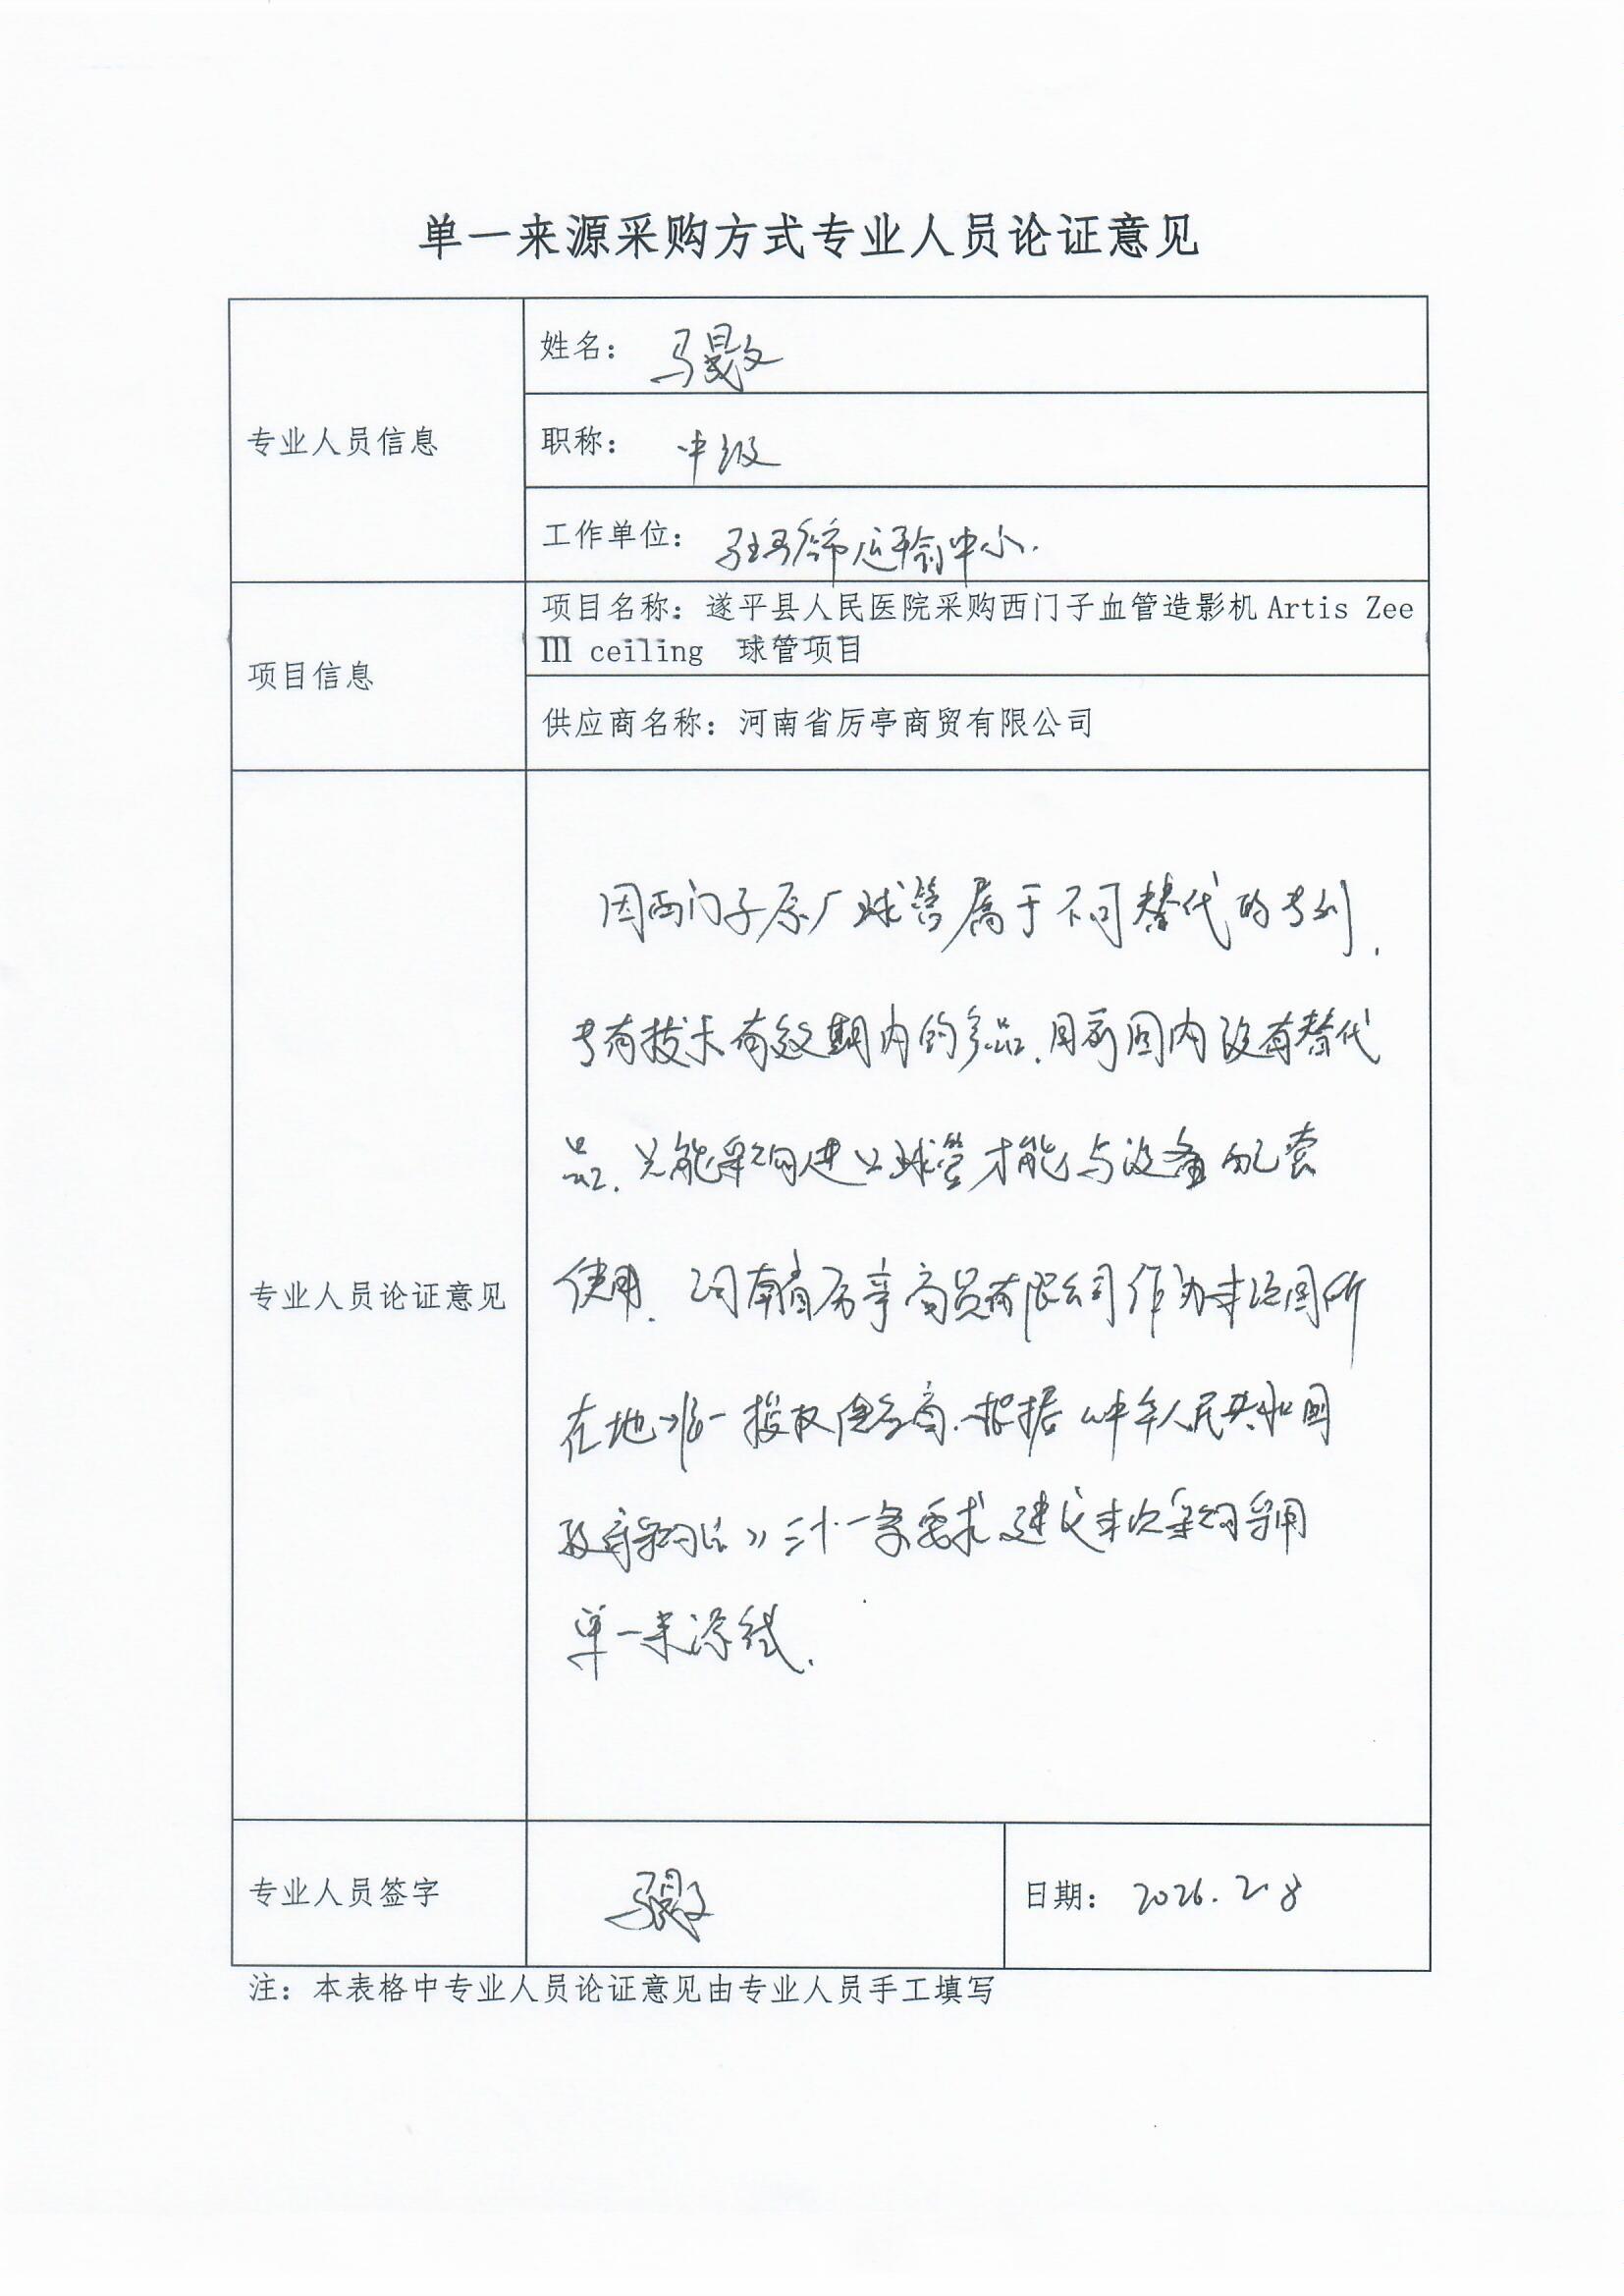 单一来源采购方式专业人员论证意见
专业人员信息
姓名：马
职称：中级
工作单位：驻马店市运输中心.
项目信息
项目名称：遂平县人民医院采购西门子血管造影机 Artis Zee
III ceiling 球管项目
供应商名称：河南省厉亭商贸有限公司
专业人员论证意见
因西门子原厂球管属于不可替代的专利,
专有技术有效期内的产品.目前国内没有替代
品.只能采购进口球管才能与设备配套
使用.河南省厉亭商贸有限公司作为本次国所
在地唯一授权供应商.根据《中华人民共和国
政府采购法》三十一条要求建议本次采购采用
单一来源方式.
专业人员签字
日期：2026.2.8
注：本表格中专业人员论证意见由专业人员手工填写